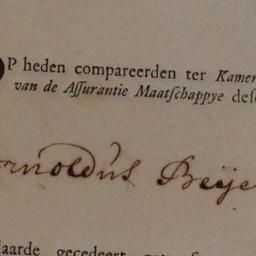 OP heden compareerden ter Kamer
van de Aſſurantie Maatſchappye deſ
rnoldus Beije
laarde gecedeert